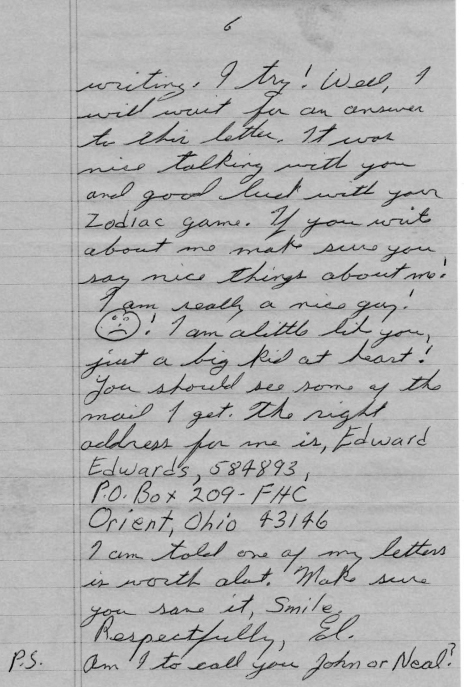 6
writing. I try! Well, I
will wait for an answer
to this letter. It was
nice talking with you
and good luck with your
Zodiac game. If you write
about me make sure you
say nice things about me!
I am really a nice guy!
! I am alittle lik you,
just a big kid at heart!
You should see some of the
mail I get. The right
address for me is, Edward
Edwards, 584893,
P.O. Box 209-FHC
Orient, Ohio 43146
I am told one of my letters
is worth alot. Make sure
you save it, Smile.
Respectfully, Ed.
P.S. Am I to call you John or Neal?